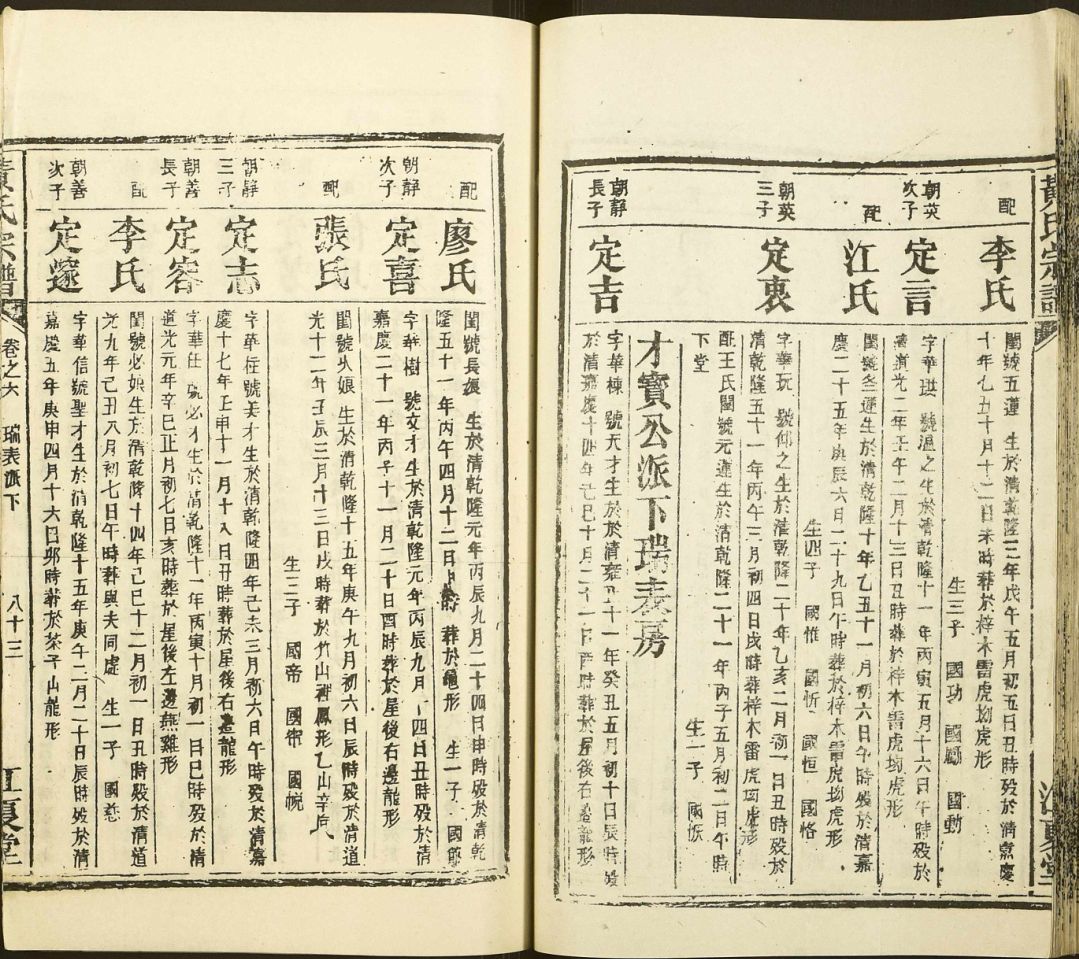 黃氏宗譜
江夏堂
配
李氏
閨號五蓮 生於清乾隆三年戊午五月初五日丑時歿於清嘉慶
十年乙丑十月十二日未時葬於梓木雷虎坳虎形
生三子 國功 國勳 國動
朝英
次子
定言
字華琪 號溫之生於清乾隆十 年丙寅五月十六日午時歿於
清道光二年壬午二月十三日丑時葬於梓木雷虎坳虎形
配
江氏
閨號冬蓮生於清乾隆十年乙丑十一月初六日午時歿於清嘉
慶二十五年庚辰六月二十九日午時葬於梓木雷虎坳虎形
生四子 國惟 國忻 國恒 國恪
朝英
三子
定衷
字華玩 號仰之生於清乾隆二十年乙亥二月初一日丑時歿於
清乾隆五十一年丙午三月初四日戌時葬梓木雷虎坳虎形
配王氏閨號元蓮生於清乾隆二十一年丙子五月初二日午時
下堂
生一子 國恢
才寶公派下瑞表房
朝靜
長子
定吉
字華棟 號天才生於於清雍 十一年癸丑五月初十日辰時歿
於清嘉慶十四年己巳十月二十一日 時葬於屋後右邊龍形
配
廖氏
閨號長娘 生於清乾隆元年丙辰九月二十四日申時歿於清乾
隆五十一年丙午四月十二日 時 葬於龜形 生一子 國節
朝靜
次子
定喜
字華樹 號文才生於清乾隆元年丙辰九月 四日丑時歿於清
嘉慶二十一年丙子十一月二十日酉時葬於屋後右邊龍形
配
張氏
閨號火娘 生於清乾隆十五年庚午九月初六日辰時歿於清道
光十二年壬辰三月十三日戌時葬於竹山裡鳳形乙山辛向
生三子 國帝 國 國悅
朝靜
三子
定志
字華任號美才生於清乾隆四年己未三月初六日午時歿於清嘉
慶十七年壬申十一月十八日丑時葬於屋後右邊龍形
朝善
長子
定容
字華仕 號必才生於清乾隆十一年丙寅十月初一日巳時歿於清
道光元年辛巳正月初七日亥時葬於屋後左邊燕雞形
配
李氏
閨號必娘生於清乾隆十四年己巳十二月初一日丑時歿於清道
光九年己丑八月初七日午時葬與夫同處 生一子 國慈
朝善
次子
定邃
字華信號聖才生於清乾隆十五年庚午二月二十日辰時歿於清
嘉慶五年庚申四月十六日卯時葬於茶子山龍形
黃氏宗譜
卷之六 瑞表派下 八十三
江夏堂